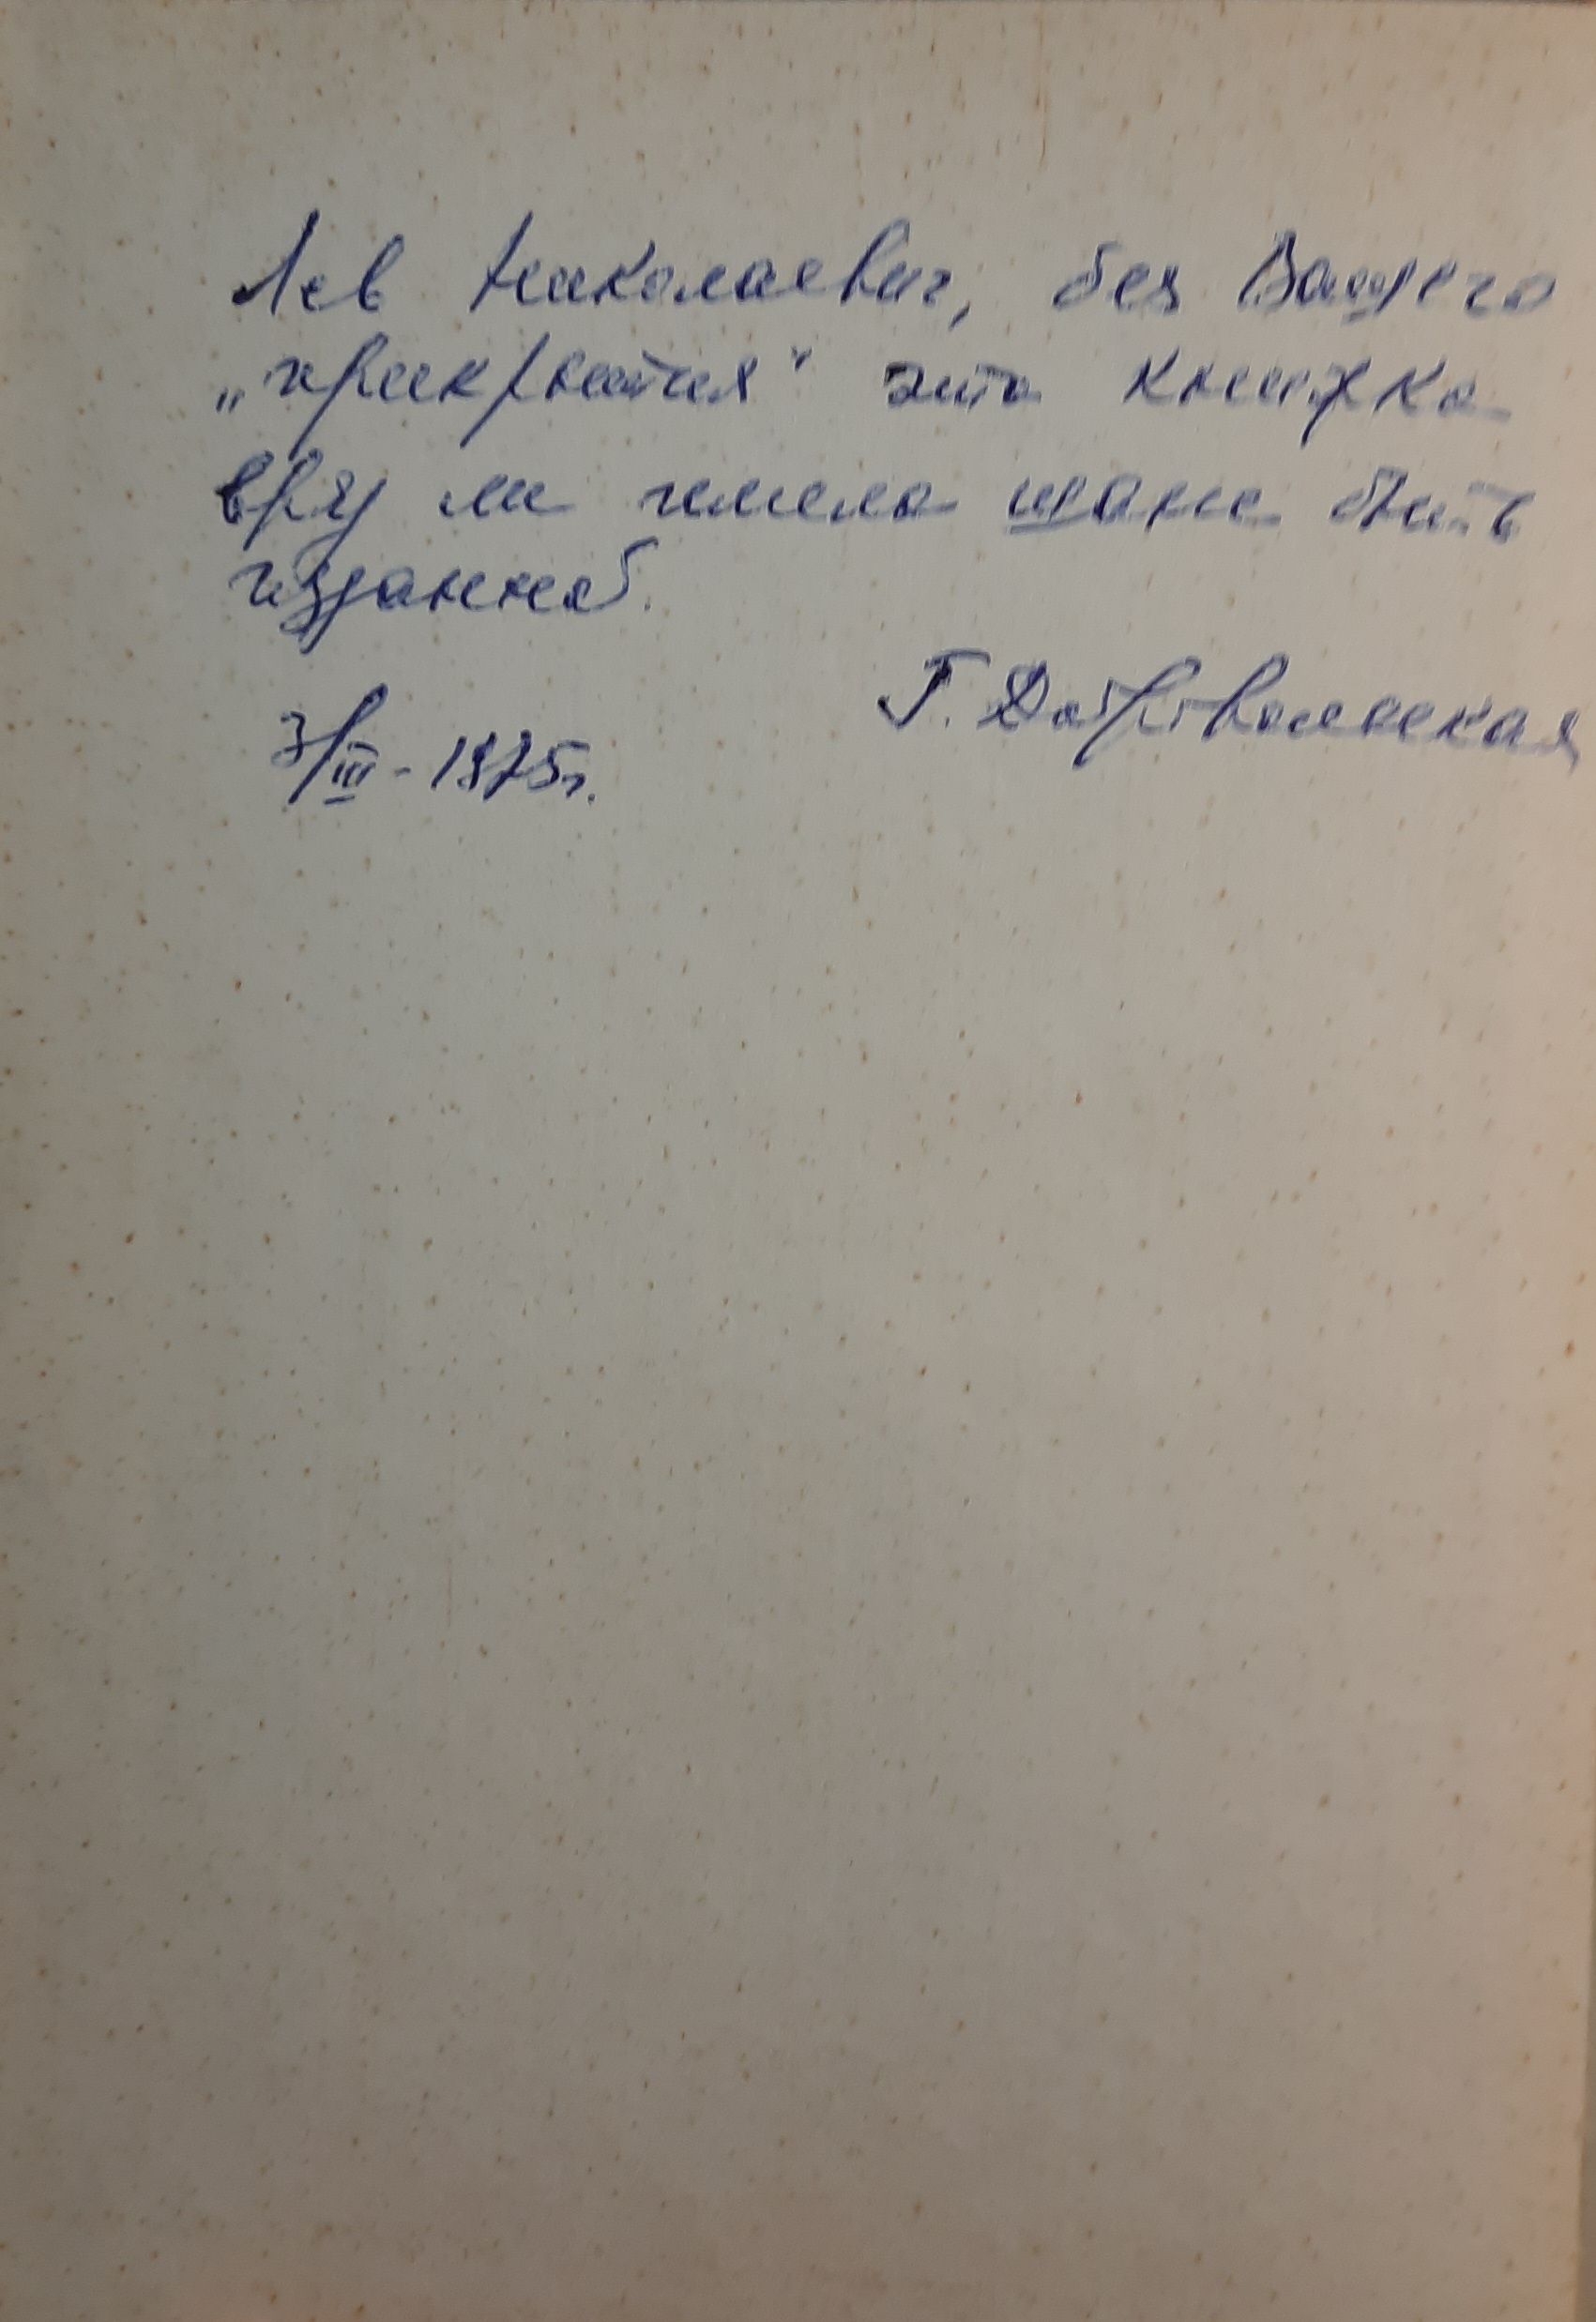 Лев Николаевич, без Вашего
„прикрытия" эта книжка
вряд ли имела шанс быть
изданной.
Г. Добровольская
3/III - 1975г.